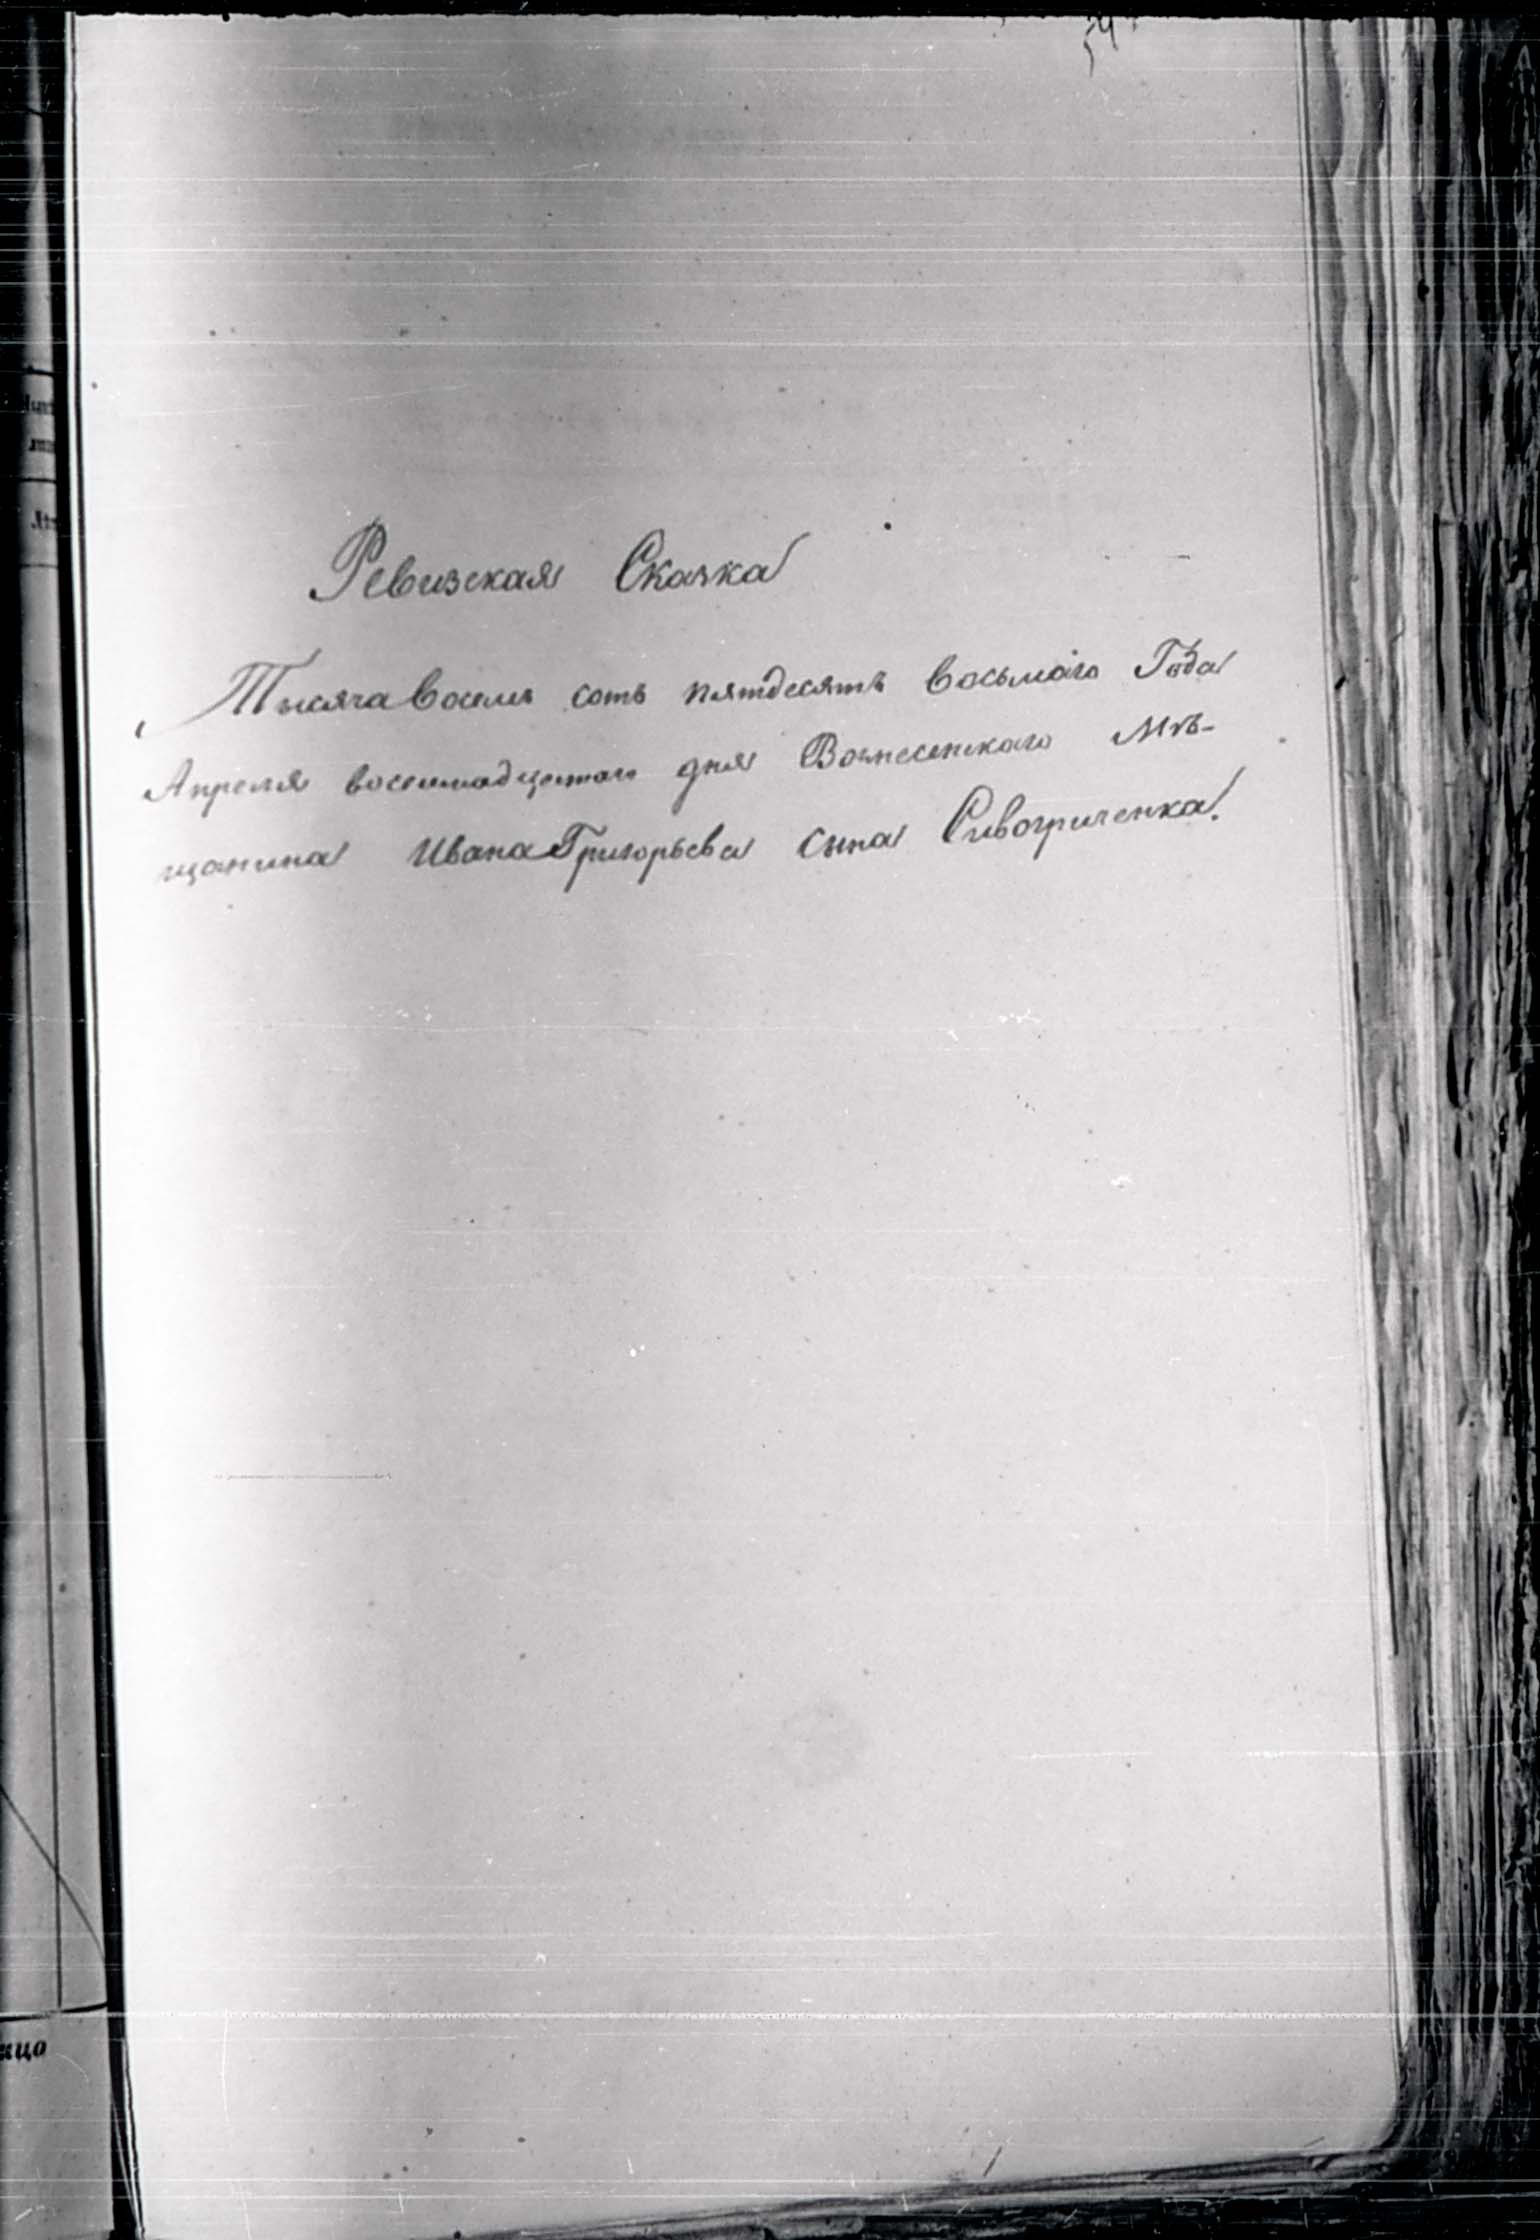 Ревизская Сказка
Тысяча восемь сотъ пятдесятъ восьмаго Года
Апреля восемнадцатаго дня Вознесенскаго Мѣ-
щанина Ивана Григорьева сына Сивогриченка.
ицо